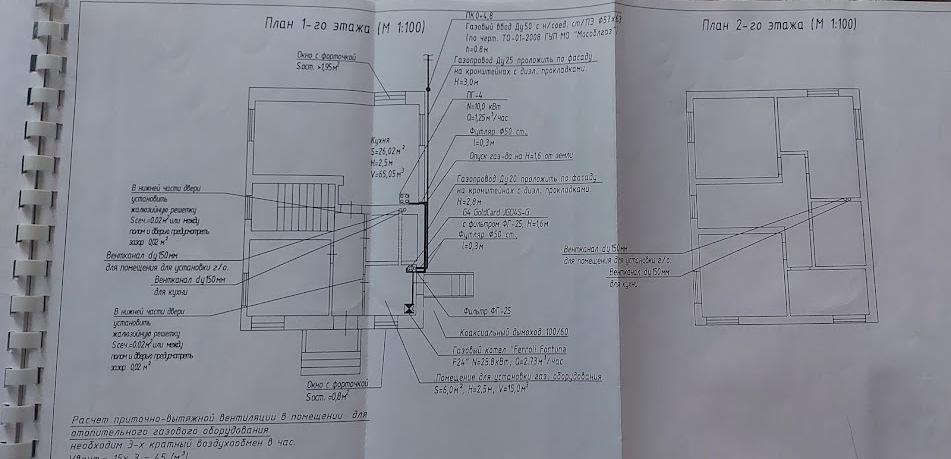 План 1-го этажа (М 1:100)
План 2-го этажа (М 1:100)
ПК0+4,8
Газовый ввод Ду50 с н/соед. ст/ПЭ Ф57х63
(по черт. ТО-01-2008 ГУП МО "Мособлгаз")
h=0.8м
Газопровод Ду25 проложить по фасаду
на кронштейнах с диэл. прокладками.
Н=3,0м
Окно с форточкой
Sост. >1,95м²
ПГ-4
N=10,0 кВт
Q=1,25м³/час
Футляр Ф50 ст.
l=0,3м
Опуск газ-да на Н=1,6 от земли
Кухня
S=26,02м²
Н=2,5м
V=65,05м³
Газопровод Ду20 проложить по фасаду
на кронштейнах с диэл. прокладками.
Н=2,8м
G4 GoldCard JGD4S-G
с фильтром ФГ-25, Н=1,6м
Футляр Ф50 ст.
l=0,3м
В нижней части двери
установить
жалюзийную решетку
Sсеч.=0.02м² или между
полом и дверье предусмотреть
зазор 0,02 м²
Вентканал dу150мм
для помещения для установки г/о.
Вентканал dу150мм
для кухни
В нижней части двери
установить
жалюзийную решетку
Sсеч.=0.02м² или между
полом и дверье предусмотреть
зазор 0,02 м²
Вентканал dу150мм
для помещения для установки г/о.
Вентканал dу150мм
для кухни
Фильтр ФГ-25
Коаксиальный дымоход 100/60
Газовый котел "Ferroli Fortuna
F24" N=25.8кВт, Q=2.73м³/час
Помещение для установки газ. оборудования
S=6,0м², Н=2,5м, V=15,0м³
Окно с форточкой
Sост. =0,8м²
Расчет приточно-вытяжной вентиляции в помещении для
отопительного газового оборудования
необходим 3-х кратный воздухообмен в час.
Vвент = 15х 3 = 45 (м³)